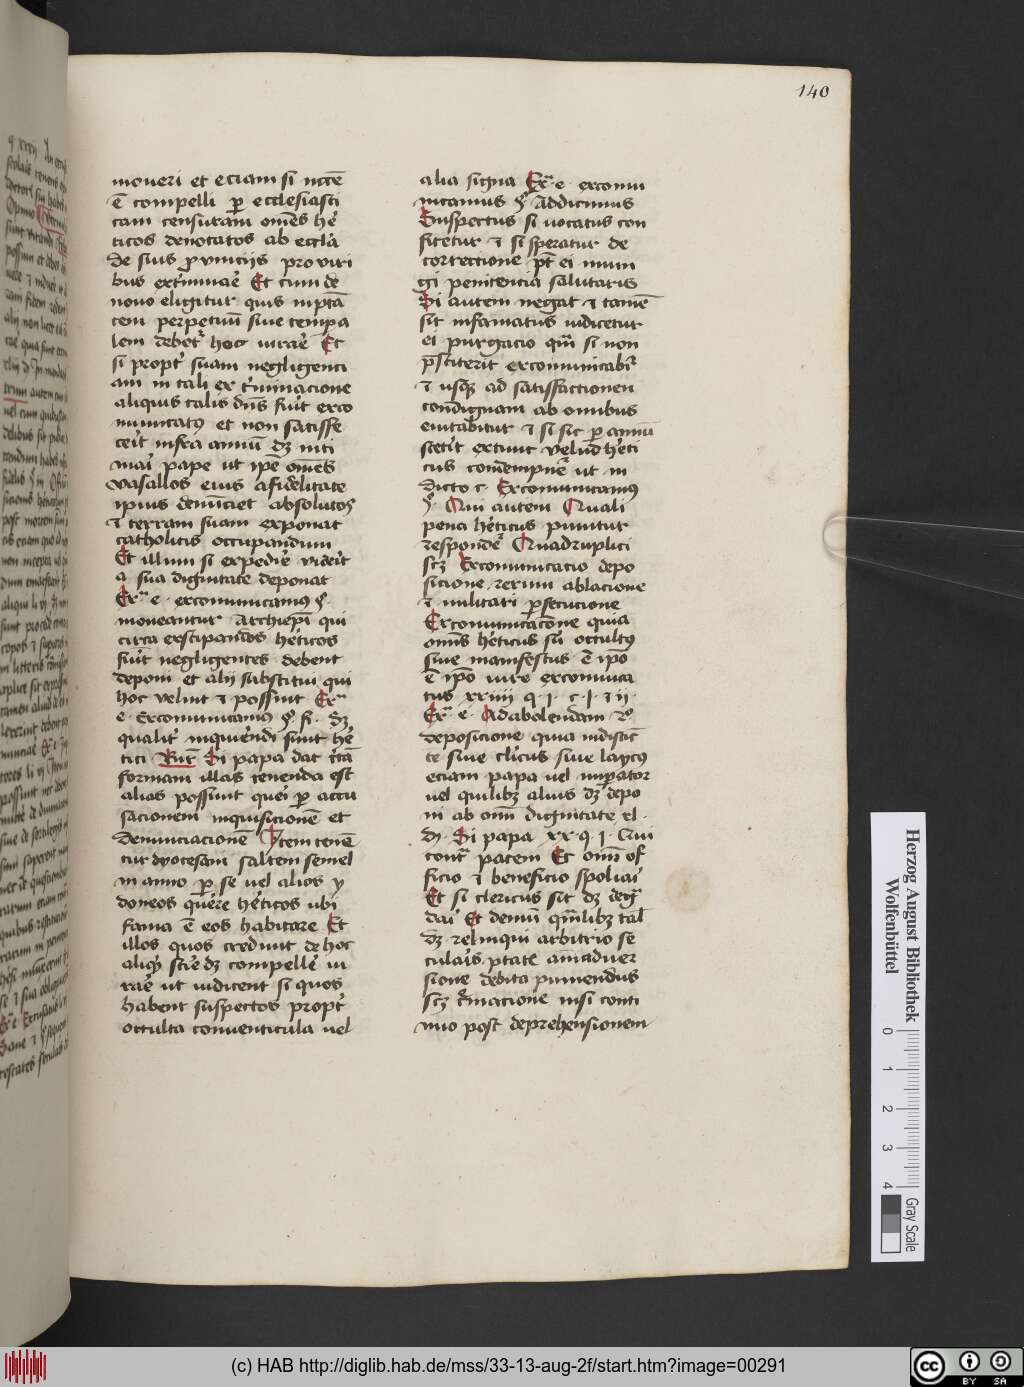 140
moueri et eciam si nccē
ē compelli ꝑ ecclesiasti
cam censuram om̄es he
ticos denotatos ab eccla
de suis ꝓvincijs pro viri
bus ext̓minae Et cum de
nouo eligitur quis in ptā
tem perpetuū siue tempa
lem debet hoc iurae Et
si propt̓ suam negligenci
am in tali ex t̓minacione
aliquis talis dn̄s fu̓it exco
municatꝰ et non satisfe
ce̓it infra annū dꝫ inti
mai pape ut ip̄e om̄es
vasallos eius a fidelitate
ipius denūciet absolutos
⁊ terram suam exponat
catholicis occupandum
Et illum si expedire vide̓it
a sua dignitate deponat
Exͬ e · excomunicamꝰ §
moneantur Archiepi̓ qui
circa exstipandos he̓ticos
fu̓it negligentes debent
deponi et alij substitui qui
hoc velint ⁊ possint Exͬ
e · Excomunicamꝰ § fi · dꝫ
qualit̓ inquirendi sunt he̓
tici Rn̄t Si papa dat c̓tā
formam illas tenenda est
alias possunt queri ꝑ accu
sacionem inquisicionē et
denunciacionē Item tenē
tur dyocesani saltem semel
in anno ꝑ se uel alios y
doneos que̓re he̓ticos ubi
fama ē eos habitare Et
illos quos credunt de hoc
aliqͥd sci̓e dꝫ compelle̓ iu
rae ut iudicent si quos
habent suspectos propt̓
occulta conuenticula uel
alia signa Exͬ e · excomu
nicamus § Addicimus
Suspectus si uocatus con
fitetur ⁊ si speratur de
correctione pt̄ ei iniun
gi penitencia salutaris
Si autem negat ⁊ tamē
sit infamatus indicetur
ei purgacio qm̄ si non
p̄stiterit excomunicabiͬ
⁊ usqꝫ ad satisfactionem
condignam ab omibus
euitabitur ⁊ si sic ꝑ annū
stetit extunc velud he̓ti
cus condempneͬ ut in
dicto c · Excomunicamꝰ
§ · Qui autem Quali
pena he̓ticus punitur
respondeͬ Quadruplici
scꝫ Excomunicatio depo
sicione rerum ablacione
⁊ militari ꝑsecucione
Excomunicacōne quia
omīs he̓ticus siū occultꝰ
siue manifestus ē ip̄o
ē ip̄o iure excomunica
tus xxiiii q · i · c · i · ⁊ ii ·
Exͬ e · Ad abolendam
deposicione quia indistc̄
te siue cl̓icus siue laycꝰ
eciam papa uel imꝑator
uel quilibꝫ alius dꝫ depo
ni ab omī dignitate xl ·
di · Si papa xx · q · i · Qui
cont̓ pacem Et omī of
ficio ⁊ beneficio spoliai
Et si clericus sit dꝫ deg̓
dai Et demū qm̄libꝫ tal̄
dꝫ relinqui arbitrio se
cularis ptate animaduer
sione debita puniendus
scꝫ c̓macione nisi conti
nuo post deprehensionem
Herzog August Bibliothek
Wolfenbüttel
0 1 2 3 4
Gray Scale
(c) HAB http://diglib.hab.de/mss/33-13-aug-2f/start.htm?image=00291
cc BY SA